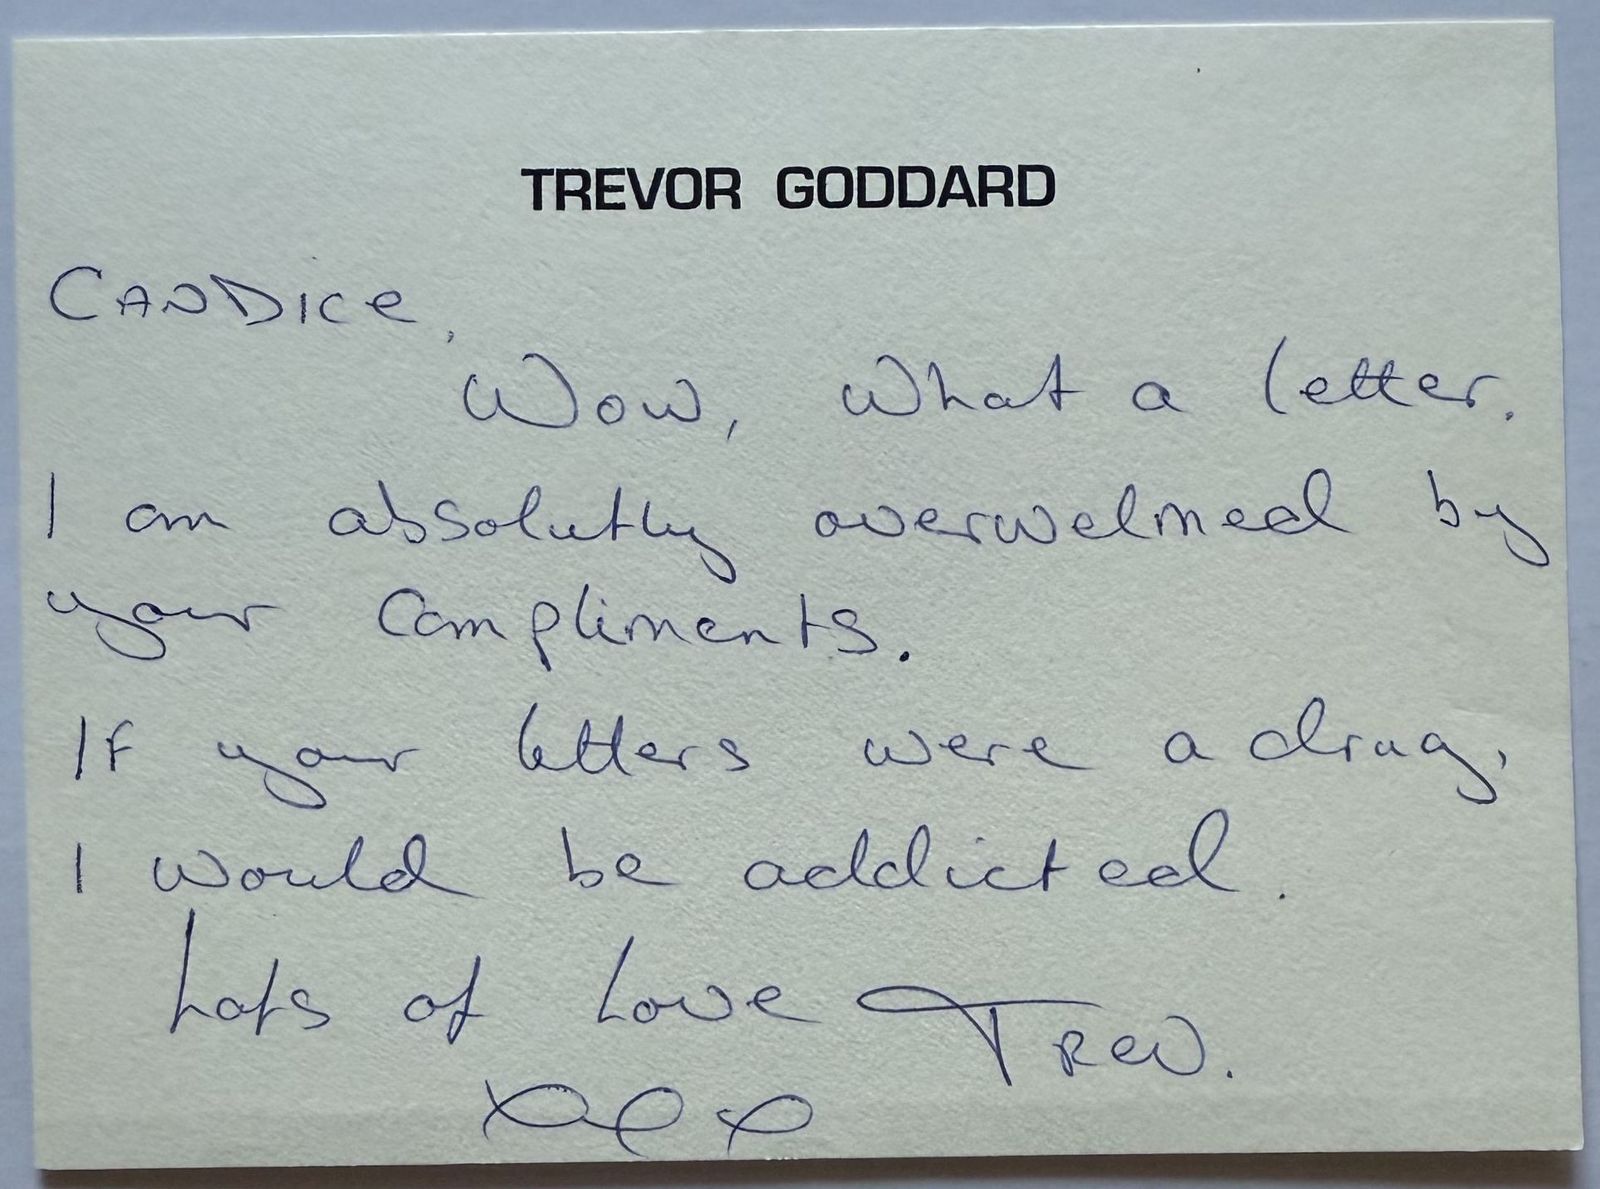 TREVOR GODDARD
CANDICe,
Wow, what a letter.
I am absolutly overwelmed by
your Compliments.
If your letters were a drug,
I would be addicted.
Lots of Love Trev.
xox